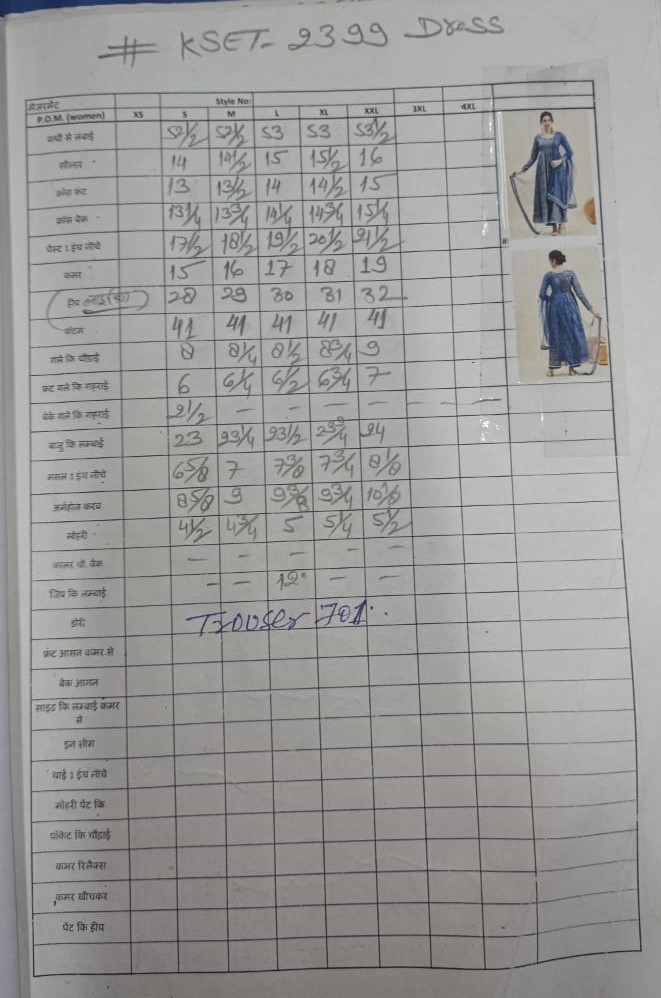 # KSET-2399 Dress
मेजरमेंट Style No:
P.O.M. (women) XS S M L XL XXL 3XL 4XL
कंधे से लंबाई 52½ 52½ 53 53 53½
सोल्डर 14 14½ 15 15½ 16
क्रॉस फ्रंट 13 13½ 14 14½ 15
क्रॉस बेक 13¼ 13¾ 14¼ 14¾ 15¼
चेस्ट 1 इंच नीचे 17½ 18½ 19½ 20½ 21½
कमर 15 16 17 18 19
हीप 28 29 30 31 32
बॉटम 41 41 41 41 41
गले कि चौड़ाई 8 8¼ 8½ 8¾ 9
फ्रंट गले कि गहराई 6 6¼ 6½ 6¾ 7
बेक गले कि गहराई 2½ - - - - - -
बाजु कि लम्बाई 23 23¼ 23½ 23¾ 24
मसल 1 इंच नीचे 6⅝ 7 7⅜ 7¾ 8⅛
अर्महोल करव 8⅝ 9 9⅜ 9¾ 10⅛
मोहरी 4½ 4¾ 5 5¼ 5½
कालर पी. बेक - - - - -
जिप कि लम्बाई - - 12" - -
डोरी Trouser 701.
फ्रंट आसन कमर से
बेक आसन
साइड कि लम्बाई कमर
से
इन सीम
थाई 1 इंच नीचे
मोहरी पेंट कि
पॉकेट कि चौड़ाई
कमर रिलैक्स
कमर खीचकर
पेंट कि हीप